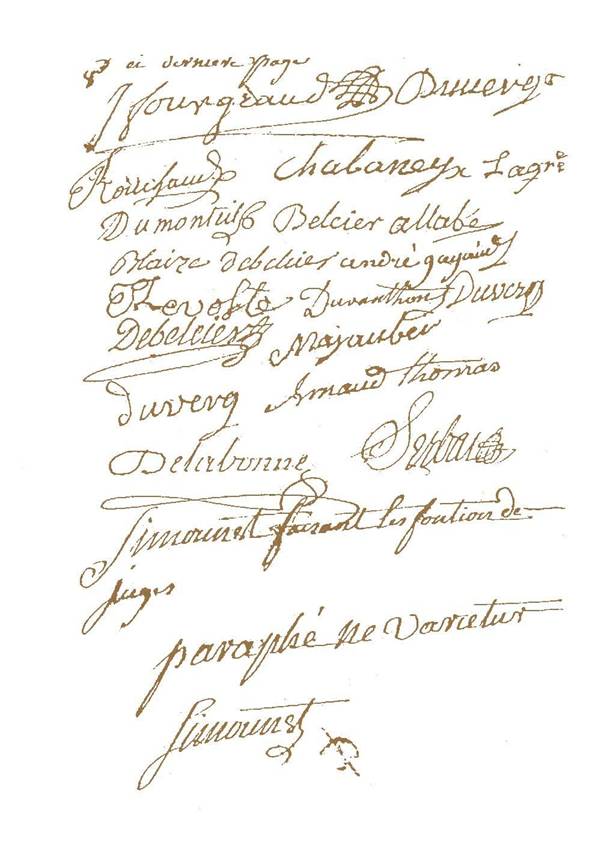 8e et derniere page
Jfourgeaud Duverg
Rouchaud Chabaneyx Lagre
Dumonteilh Belcier allabe
Blaize debelcier andré gayaud
Prevoste Duranthon Duverg
Debelcier Majaubert
duverg Arnaud thomas
Delabonne
Simounet faisant les fontion de
juges
paraphé ne varietur
Simounet